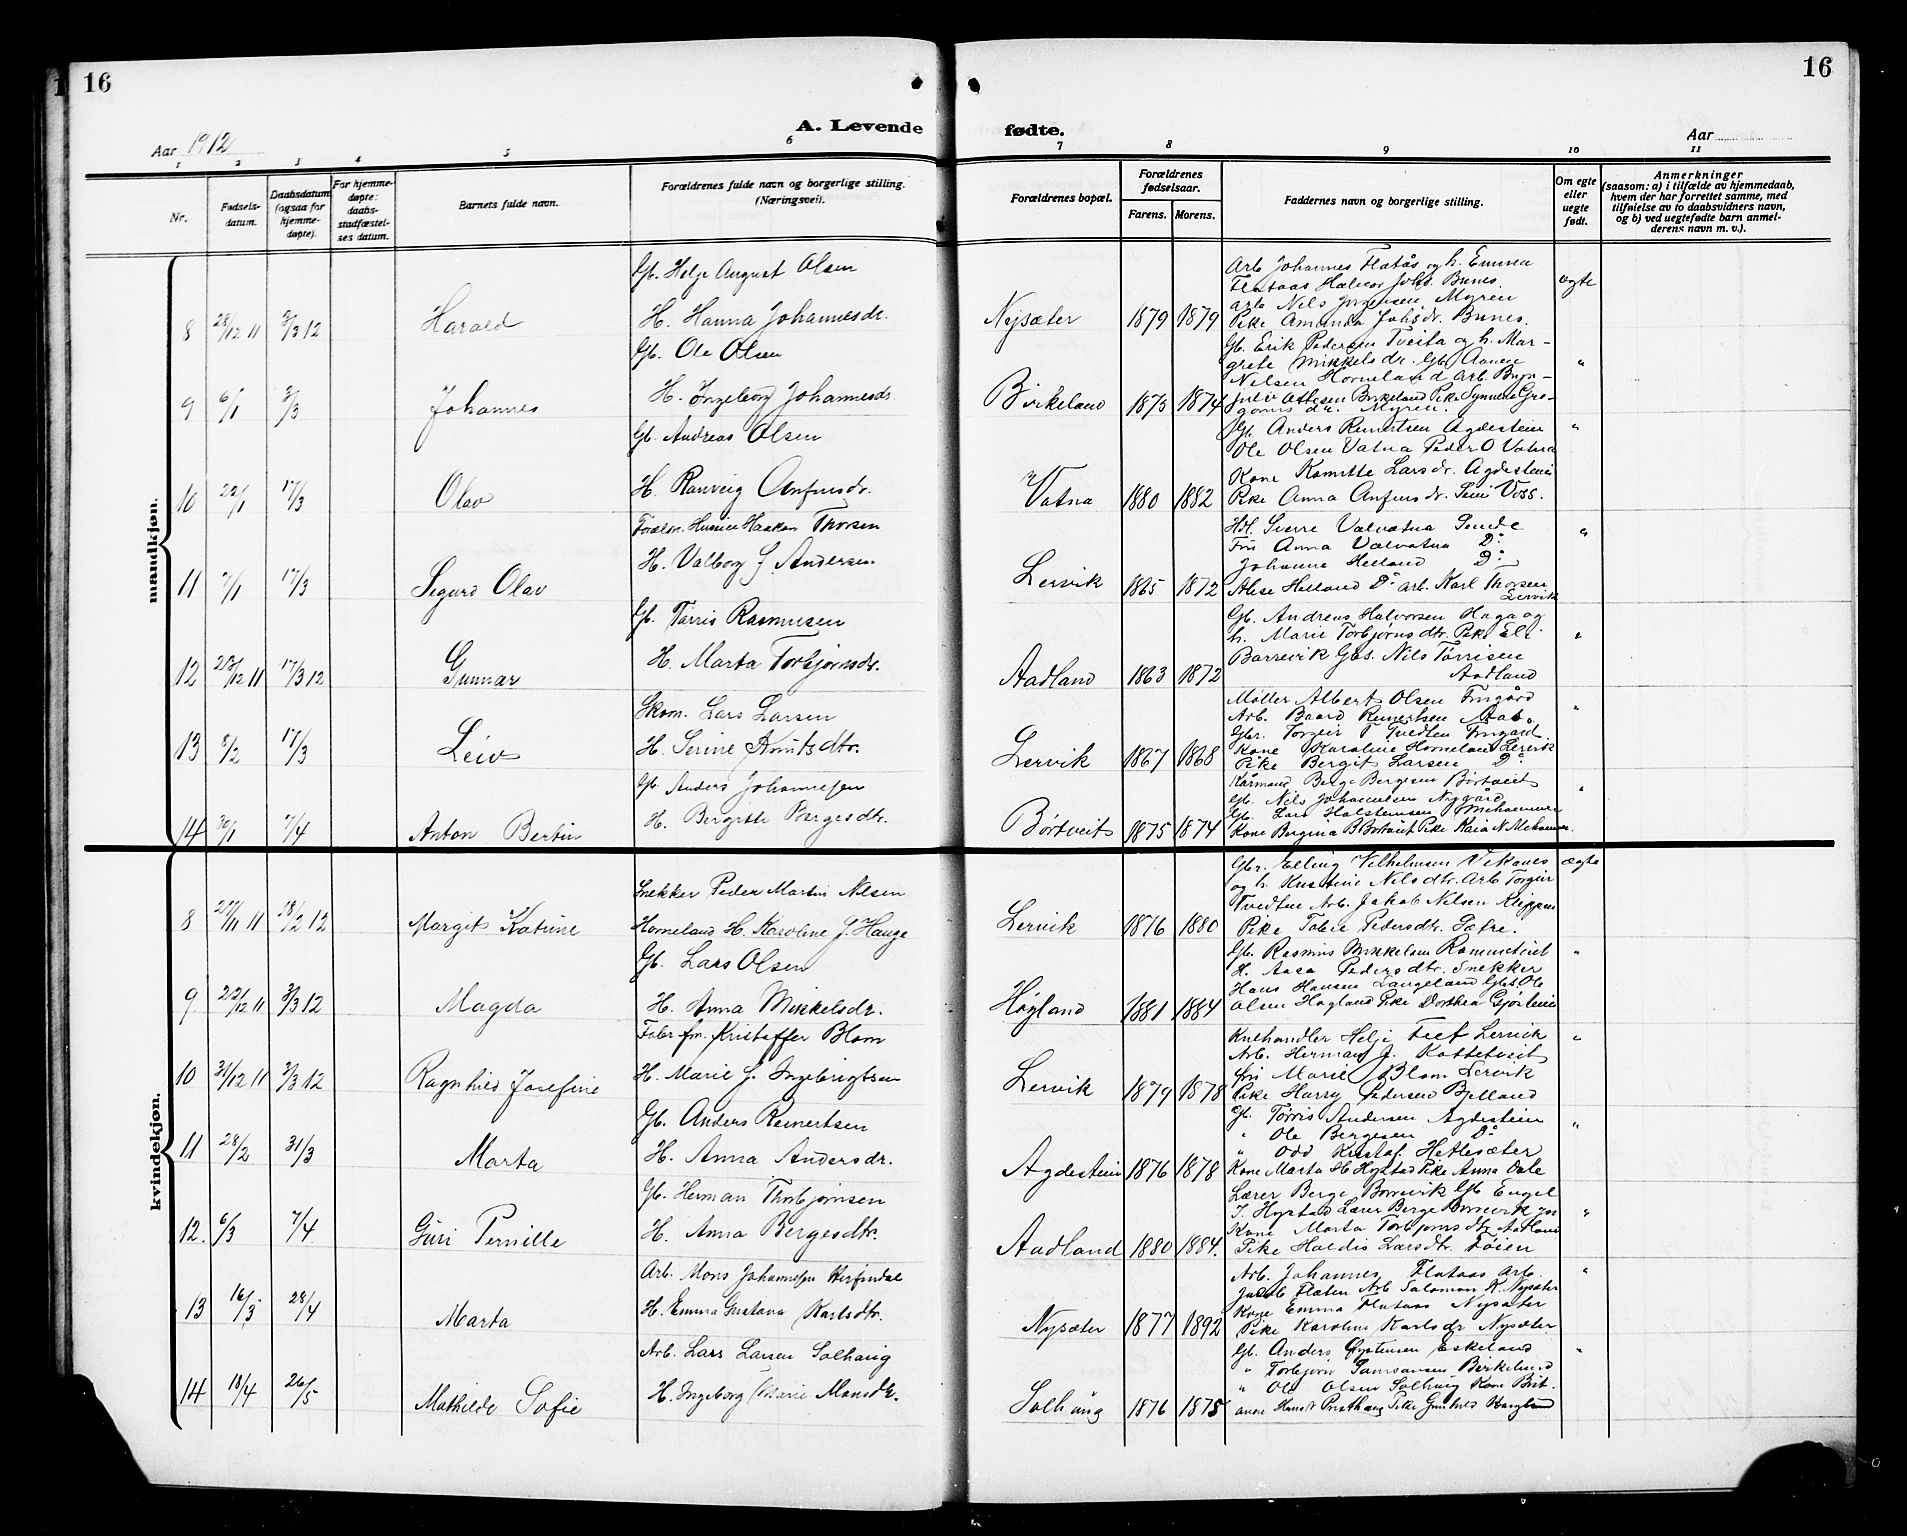 16
16
A. Levende
fødte.
Aar 1912
Aar
1 2 3 4 5 6 7 8 9 10 11
Nr.
Fødsels-
datum.
Daabsdatum
(ogsaa for
hjemme-
døpte).
For hjemme-
døpte:
daabs-
stadfæstel-
ses datum.
Barnets fulde navn.
Forældrenes fulde navn og borgerlige stilling.
(Næringsvei).
Forældrenes bopæl.
Forældrenes
fødselsaar.
Farens. Morens.
Faddernes navn og borgerlige stilling.
Om egte
eller
uegte
født.
Anmerkninger
(saasom: a) i tilfælde av hjemmedaab,
hvem der har forrettet samme, med
tilføielse av to daabsvidners navn,
og b) ved uegtefødte barn anmel-
derens navn m. v.).
mandkjøn.
Gb. Helje August Olsen
8 28/12 11 3/3 12 Harald H. Hanna Johannesdr. Nysæter 1879 1879
Arb Johannes Flatås og h. Emma
Flataas Halvor Johs. Bunes.
arb Nils Jørgensen Myren
Pike Amanda Johsdr. Bunes.
egte
Gb. Ole Olsen
9 6/1 3/3 Johannes H. Ingeborg Johannesdr. Birkeland 1873 1874
Gb. Erik Pedersen Tveita og h. Mar-
grete Mikkelsdr. Gb. Aanen
Nilsen Horneland arb. Bryn-
Birkeland Pike Synneva Gre-
goriusdr. Myren.
"
Gb. Andreas Olsen
10 22/1 17/3 Olav H. Ranveig Anfinsdr. Vatna 1880 1882
Gb. Anders Reinertsen Agdestein
Ole Olsen Vatna Peder O Vatna
Kone Larsdr. Agdestein
Pike Anna Anfinsdr. Voss.
"
Thorsen
11 7/1 17/3 Sigurd Olav H. Valborg J. Andersen Lervik 1865 1872
Hdl. Sverre Valvatna
Frk Anna Valvatna Do
Johanne Helland Do
Helland Do arb. Karl Thorsen
Lervik
"
Gb. Tørris Rasmusen
12 28/12 11 17/3 12 Gunnar H. Marta Torbjørnsdr. Aadland 1863 1872
Gb. Andreas Halvorsen Haga og
h. Marie Torbjørnsdtr. Pike Eli
Barrevik Gbs. Nils Tørrisen
Aadland
"
Skom. Lars Larsen
13 8/2 17/3 Leiv H. Serine Knutsdtr. Lervik 1867 1868
Møller Albert Olsen
Arb. Baard Reinertsen
Gbr. Torgeir T Tvedten
Kone Karoline Horneland Lervik
Pike Bergit Larsen Do
"
Gb. Anders Johannesen
14 30/1 7/4 Anton Bertin H. Bergitte Bergesdtr. Børtveit 1875 1874
Kårmand Berge Bergesen Børtveit
Gb. Nils Johannesen Nygård
Gb. Lars Halstensen Mehammer
Kone Bergina B Børtveit Pike Kaia N. Mehammer.
"
kvindekjøn.
Snekker Peder Martin Nilsen
8 27/11 11 28/2 12 Margit Katrine Horneland H. Karoline J. Hauge Lervik 1876 1880
Gbr. Elling Vilhelmsen Vikanes
og h. Kristine Nilsdtr. Arb Torgeir
Tvedten Arb. Jakob Nilsen Klippen
Pike Pedersdtr. Sætre.
ægte
Gb. Lars Olsen
9 22/12 11 3/3 12 Magda H. Anna Mikkelsdr. Høyland 1881 1884
Gb. Rasmus Mikkelsen
H. Aasa Pedersdtr. Snekker
Hans Hansen Langeland Gbs Ole
Olsen Høgland Pike Dorthea
"
Kristoffer Blom
10 31/12 11 3/3 12 Ragnhild Josefine H. Marie J. Ingebrigtsen Lervik 1879 1878
Helje Lervik
Arb. Herman J.
Marie Blom Lervik
Pike Harry Pedersen Bjelland
"
Gb. Anders Reinertsen
11 28/2 31/3 Marta H. Anna Andersdr. Agdestein 1876 1878
Gb. Tørris Andersen Agdestein
" Ole Bergesen Do
" Odd Kristof. Hetlesæter
Kone Marta H Hystad Pike Anna Dale
"
Gb. Herman Thorbjørnsen
12. 6/3 7/4 Guri Pernille H. Anna Bergesdtr. Aadland 1880 1884.
Lærer Berge Borrevik Gb Engel
T. Hystad Lærer Berge Borrevik jn
Kone Marta Torbjørnsdtr Aadland
Pike Haldis Larsdtr. Tøien
"
Arb. Mons Johannesen Herfindal
13 16/3 28/4 Marta H. Emma Gustava Karlsdtr. Nysæter 1877 1892
Arb. Johannes Flataas Arb.
Jakob Flaten Arb Salomon K. Nysæter
Kone Emma Flataas Nysæter
Pike Karoline Karlsdr Nysæter
"
Arb. Lars Larsen Solhaug
14 18/4 26/5 Mathilde Sofie H. Ingeborg Marie Monsdtr. Solhaug 1876 1875
Gb. Anders Øystensen Eskeland
" Torbjørn Samsonsen Birkeland
" Ole Olsen Solhaug Kone Brit-
anna
"